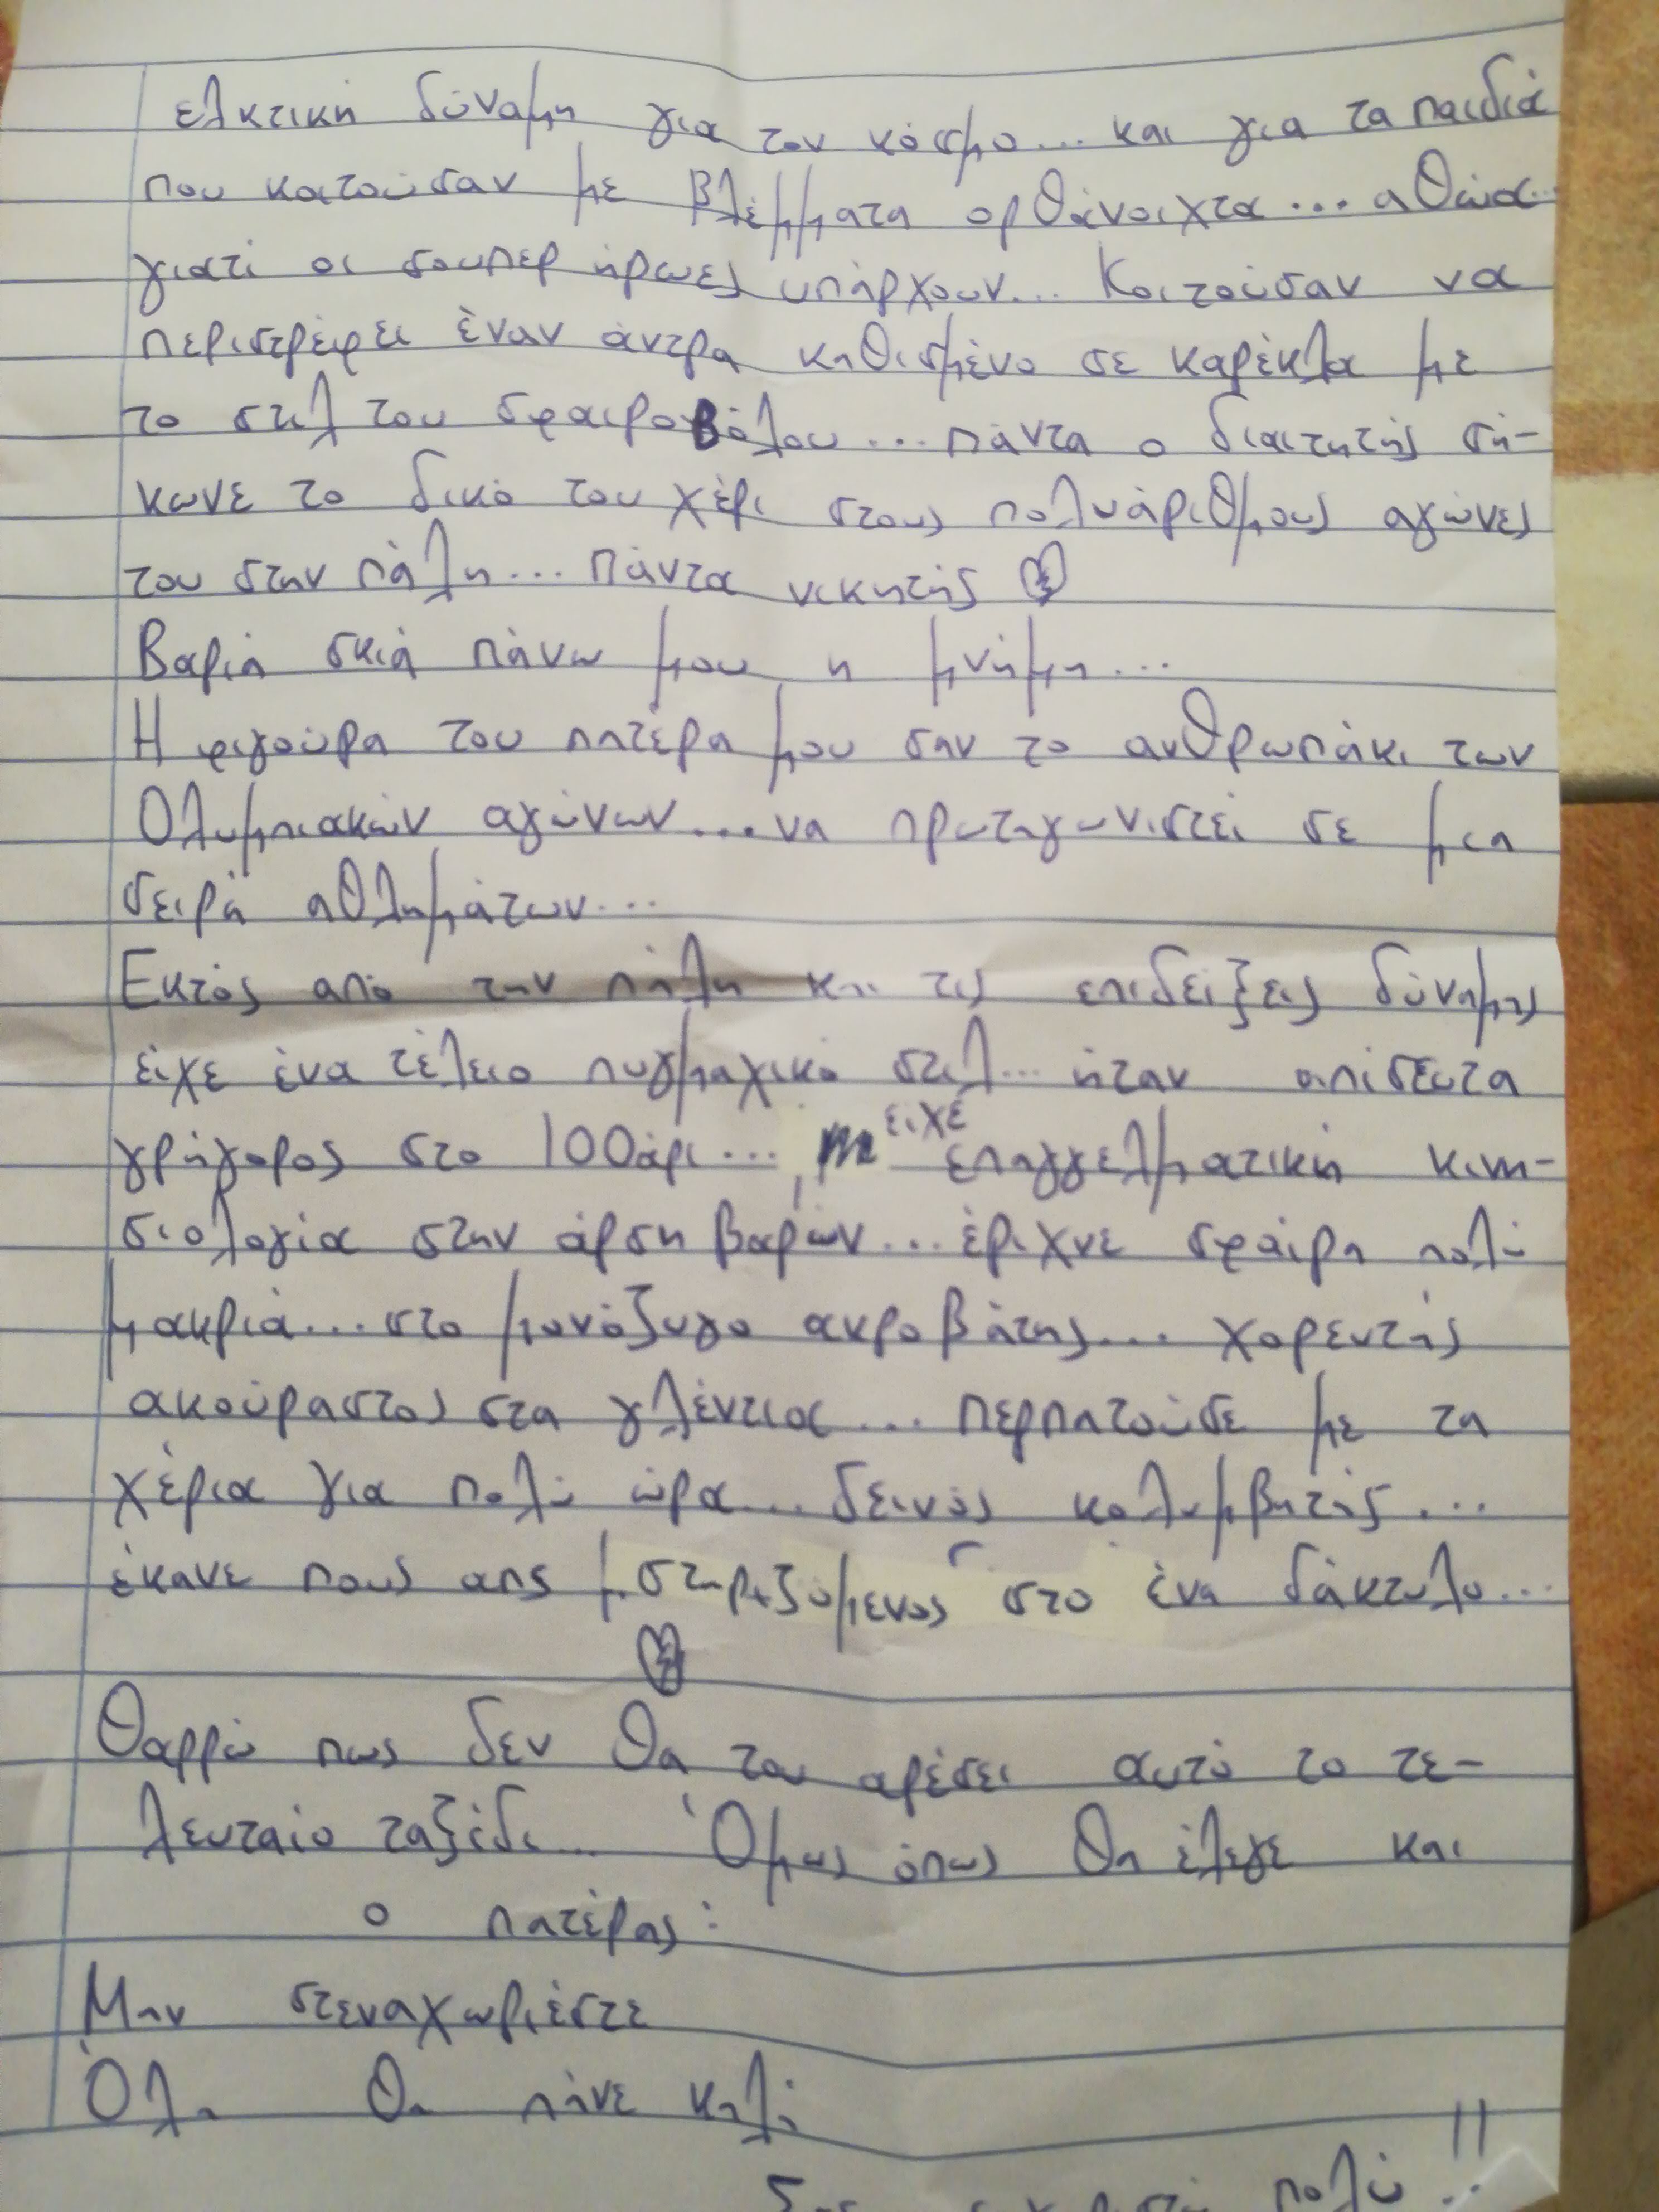 ελκτική δύναμη για τον κόσμο... και για τα παιδιά
που κοιτούσαν με βλέμματα ορθάνοιχτα... αθώα...
γιατί οι σουπερ ήρωες υπάρχουν... Κοιτούσαν να
περιστρέφει έναν άντρα καθισμένο σε καρέκλα με
το στιλ του σφαιροβόλου... πάντα ο διαιτητής σή-
κωνε το δικό του χέρι στους πολυάριθμους αγώνες
του στην πάλη... Πάντα νικητής
Βαριά σκιά πάνω μου η μνήμη...
Η φιγούρα του πατέρα μου σαν το ανθρωπάκι των
Ολυμπιακών αγώνων... να πρωταγωνιστεί σε μια
σειρά αθλημάτων...
Εκτός από την πάλη και τις επιδείξεις δύναμης
είχε ένα τέλειο πυγμαχικό στιλ... ήταν απίστευτα
γρήγορος στο 100άρι... είχε επαγγελματική κινη-
σιολογία στην άρση βαρών... έριχνε σφαίρα πολύ
μακριά... στο μονόζυγο ακροβάτης... χορευτής
ακούραστος στα γλέντια... περπατούσε με τα
χέρια για πολύ ώρα... δεινός κολυμβητής...
έκανε πους απς στηριζόμενος στο ένα δάκτυλο...
Θαρρώ πως δεν θα του αρέσει αυτό το τε-
λευταίο ταξίδι... Όμως όπως θα έλεγε και
ο πατέρας:
Μην στεναχωριέστε
Όλα θα πάνε καλά
πολύ !!